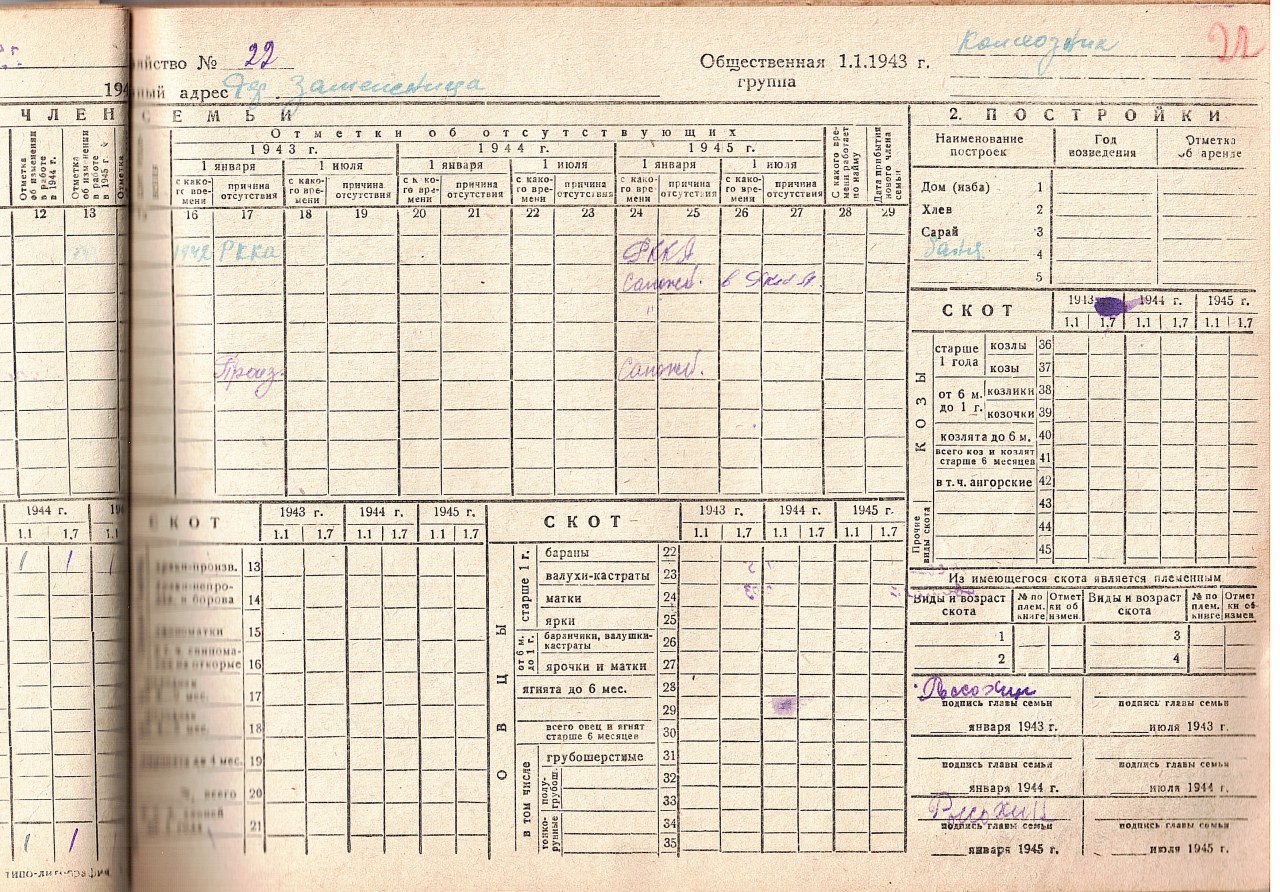 22
Хозяйство № 22
Общественная 1.1.1943 г.
группа
Колхозник
адрес Дер.
ЧЛЕН
СЕМЬИ
Отметки об отсутствующих
1943 г. 1944 г. 1945 г.
1 января 1 июля 1 января 1 июля 1 января 1 июля
с како-го вре-мени причина отсутствия с како-го вре-мени причина отсутствия с како-го вре-мени причина отсутствия с како-го вре-мени причина отсутствия с како-го вре-мени причина отсутствия с како-го вре-мени причина отсутствия
Отметка об изменении в работе в 1944 г.
Отметка об изменении в работе в 1945 г.
С какого времени работает по найму
Дата прибытия нового члена семьи
12 13 16 17 18 19 20 21 22 23 24 25 26 27 28 29
1942 РККА РККА
2. ПОСТРОЙКИ
Наименование построек Год возведения Отметка об аренде
Дом (изба) 1
Хлев 2
Сарай 3
Баня 4
5
СКОТ 1943 1944 г. 1945 г.
1.1 1.7 1.1 1.7 1.1 1.7
КОЗЫ
старше 1 года козлы 36
козы 37
от 6 м. до 1 г. козлики 38
козочки 39
козлята до 6 м. 40
всего коз и козлят старше 6 месяцев 41
в т.ч. ангорские 42
Прочие виды скота 43
44
45
1944 г.
1.1 1.7 1.1
1 1
1 1
СКОТ 1943 г. 1944 г. 1945 г.
1.1 1.7 1.1 1.7 1.1 1.7
13
14
15
16
17
18
19
всего 20
21
СКОТ 1943 г. 1944 г. 1945 г.
1.1 1.7 1.1 1.7 1.1 1.7
ОВЦЫ
старше 1 г. бараны 22
валухи-кастраты 23
матки 24
ярки 25
от 6 м. до 1 г. баранчики, валушки-кастраты 26
ярочки и матки 27
ягнята до 6 мес. 28
29
всего овец и ягнят старше 6 месяцев 30
в том числе грубошерстные 31
полу-грубош. 32
33
тонко-рунные 34
35
Из имеющегося скота является племенным
Виды и возраст скота № по плем. книге Отметки об измен Виды и возраст скота № по плем. книге Отметки об измен
1 3
2 4
Россохин
подпись главы семьи подпись главы семьи
января 1943 г. июля 1943 г.
подпись главы семьи подпись главы семьи
января 1944 г. июля 1944 г.
Россохин
подпись главы семьи подпись главы семьи
января 1945 г. июля 1945 г.
типо-литография